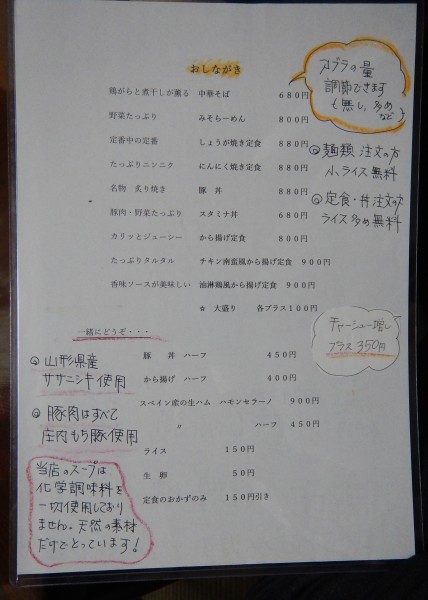 おしながき
鶏がらと煮干しが薫る 中華そば 680円
野菜たっぷり みそらーめん 800円
定番中の定番 しょうが焼き定食 880円
たっぷりニンニク にんにく焼き定食 880円
名物 炙り焼き 豚丼 880円
豚肉・野菜たっぷり スタミナ丼 680円
カリッとジューシー から揚げ定食 800円
たっぷりタルタル チキン南蛮風から揚げ定食 900円
香味ソースが美味しい 油淋鶏風から揚げ定食 900円
☆ 大盛り 各プラス100円
アブラの量
調節できます
(無し、多め
など)
◎麺類 注文の方
小ライス無料
◎定食・丼 注文の方
ライス多め無料
チャーシュー増し
プラス350円
一緒にどうぞ・・・
豚丼 ハーフ 450円
から揚げ ハーフ 400円
スペイン産の生ハム ハモンセラーノ 900円
〃 ハーフ 450円
ライス 150円
生卵 50円
定食のおかずのみ 150円引き
◎山形県産
ササニシキ使用
◎豚肉はすべて
庄内もち豚使用
当店のスープは
化学調味料を
一切使用しており
ません。天然の素材
だけでとっています!